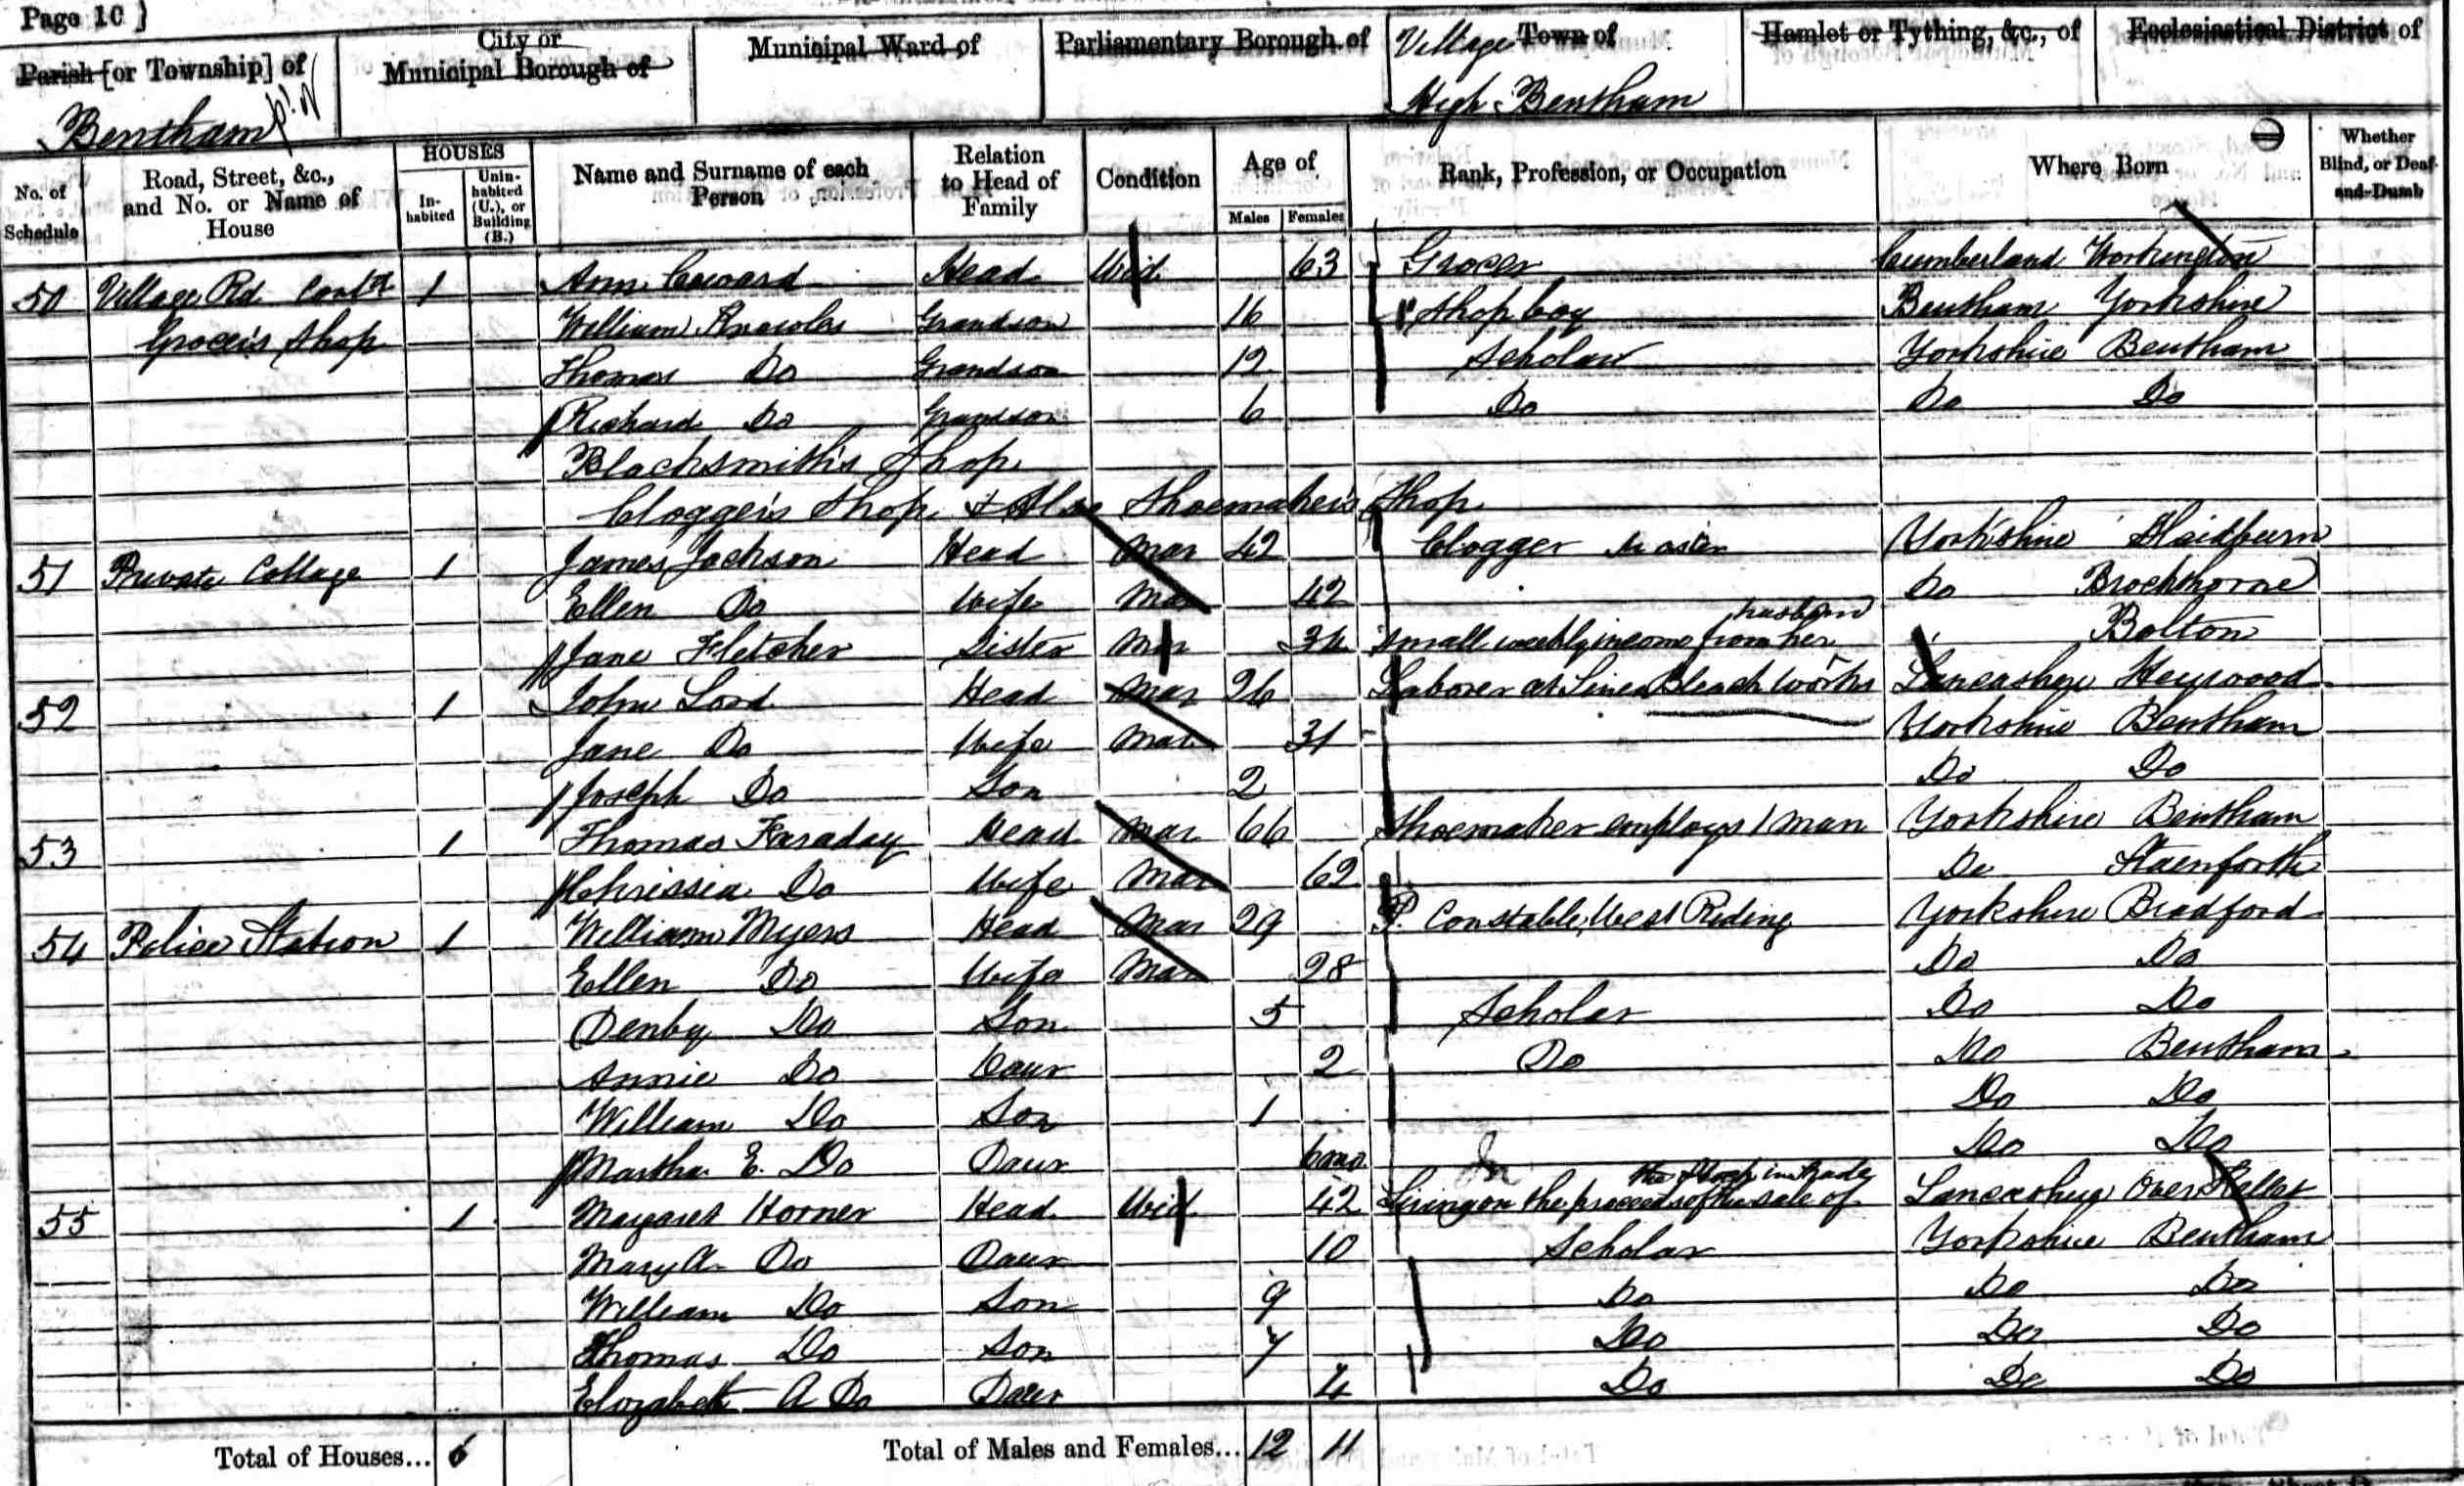 Page 10 ]
Parish [or Township] of
Bentham pt of
City or
Municipal Borough of
Municipal Ward of
Parliamentary Borough of
Village Town of
High Bentham
Hamlet or Tything, &c., of
Ecclesiastical District of
No. of Schedule
Road, Street, &c., and No. or Name of House
HOUSES
In-habited
Unin-habited (U.), or Building (B.)
Name and Surname of each Person
Relation to Head of Family
Condition
Age of
Males
Females
Rank, Profession, or Occupation
Where Born
Whether Blind, or Deaf-and-Dumb
50 Village Rd Contd 1 Ann Coward Head Wid 63 Grocer Cumberland Workington
Grocer's Shop William Knowles Grandson 16 Shop boy Bentham Yorkshire
Thomas Do Grandson 12 Scholar Yorkshire Bentham
Richard Do Grandson 6 Do Do Do
Blacksmith's Shop
Clogger's Shop & Also Shoemaker's Shop
51 Private Cottage 1 James Jackson Head Mar 42 Clogger Master Yorkshire Slaidburn
Ellen Do Wife Mar 42 Do Brockthorne
Jane Fletcher Sister Mar 34 Small weekly income from her husband Bolton
52 1 John Lord Head Mar 26 Laborer at Linen Bleach Works Lancashire Heywood
Jane Do Wife Mar 31 Yorkshire Bentham
Joseph Do Son 2 Do Do
53 1 Thomas Faraday Head Mar 66 Shoemaker employs 1 man Yorkshire Bentham
Chrissia Do Wife Mar 62 Do Stainforth
54 Police Station 1 William Myers Head Mar 29 P. Constable, West Riding Yorkshire Bradford
Ellen Do Wife Mar 28 Do Do
Denby Do Son 5 Scholar Do Do
Annie Do Daur 2 Do Do Bentham
William Do Son 1 Do Do
Martha E. Do Daur 6 mo Do Do
55 1 Margaret Horner Head Wid 42 Living on the proceeds of the sale of the Stock in trade Lancashire Over Kellet
Mary A. Do Daur 10 Scholar Yorkshire Bentham
William Do Son 9 Do Do Do
Thomas Do Son 7 Do Do Do
Elizabeth A Do Daur 4 Do Do Do
Total of Houses... 6
Total of Males and Females... 12 11